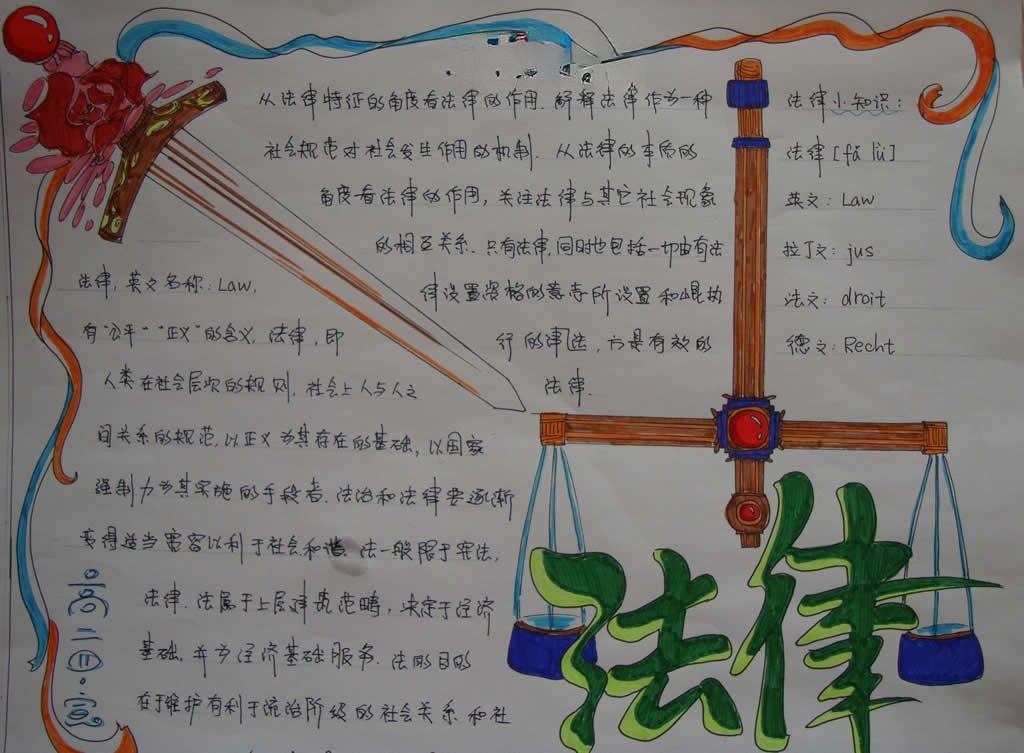 从法律特征的角度看法律的作用.解释法律作为一种
社会规范对社会发生作用的机制.从法律的本质的
角度看法律的作用,关注法律与其它社会现象
的相互关系.只有法律,同时也包括一切由有法
律设置资格的意志所设置和 执
行的 ,方是有效的
法律.
法律小知识:
法律[fǎ lǜ]
英文:Law
拉丁文:jus
法文:droit
德文:Recht
法律,英文名称:Law,
有"公平""正义"的含义,法律,即
人类在社会层次的规则,社会上人与人之
间关系的规范,以正义为其存在的基础,以国家
强制力为其实施的手段者.法治和法律要逐渐
变得适当宽容以利于社会和谐.法一般限于宪法,
法律.法属于上层建筑范畴,决定于经济
基础,并为经济基础服务.法的目的
在于维护有利于统治阶级的社会关系和社
高二四.
法律